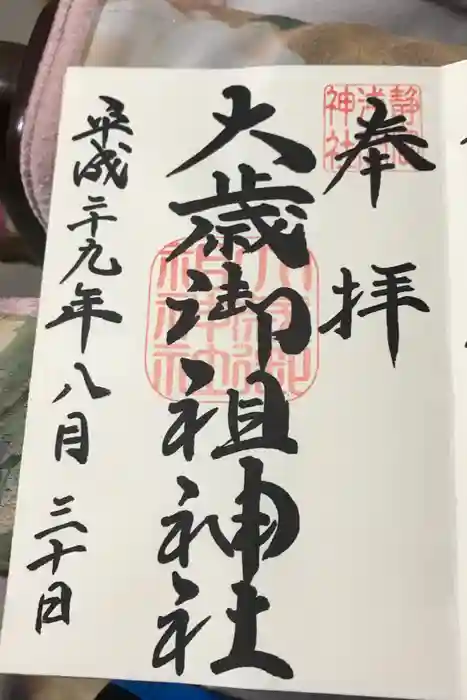 奉拝
静岡
浅間
神社
大歳御祖神社
大歳御
祖神社
平成二十九年八月三十日